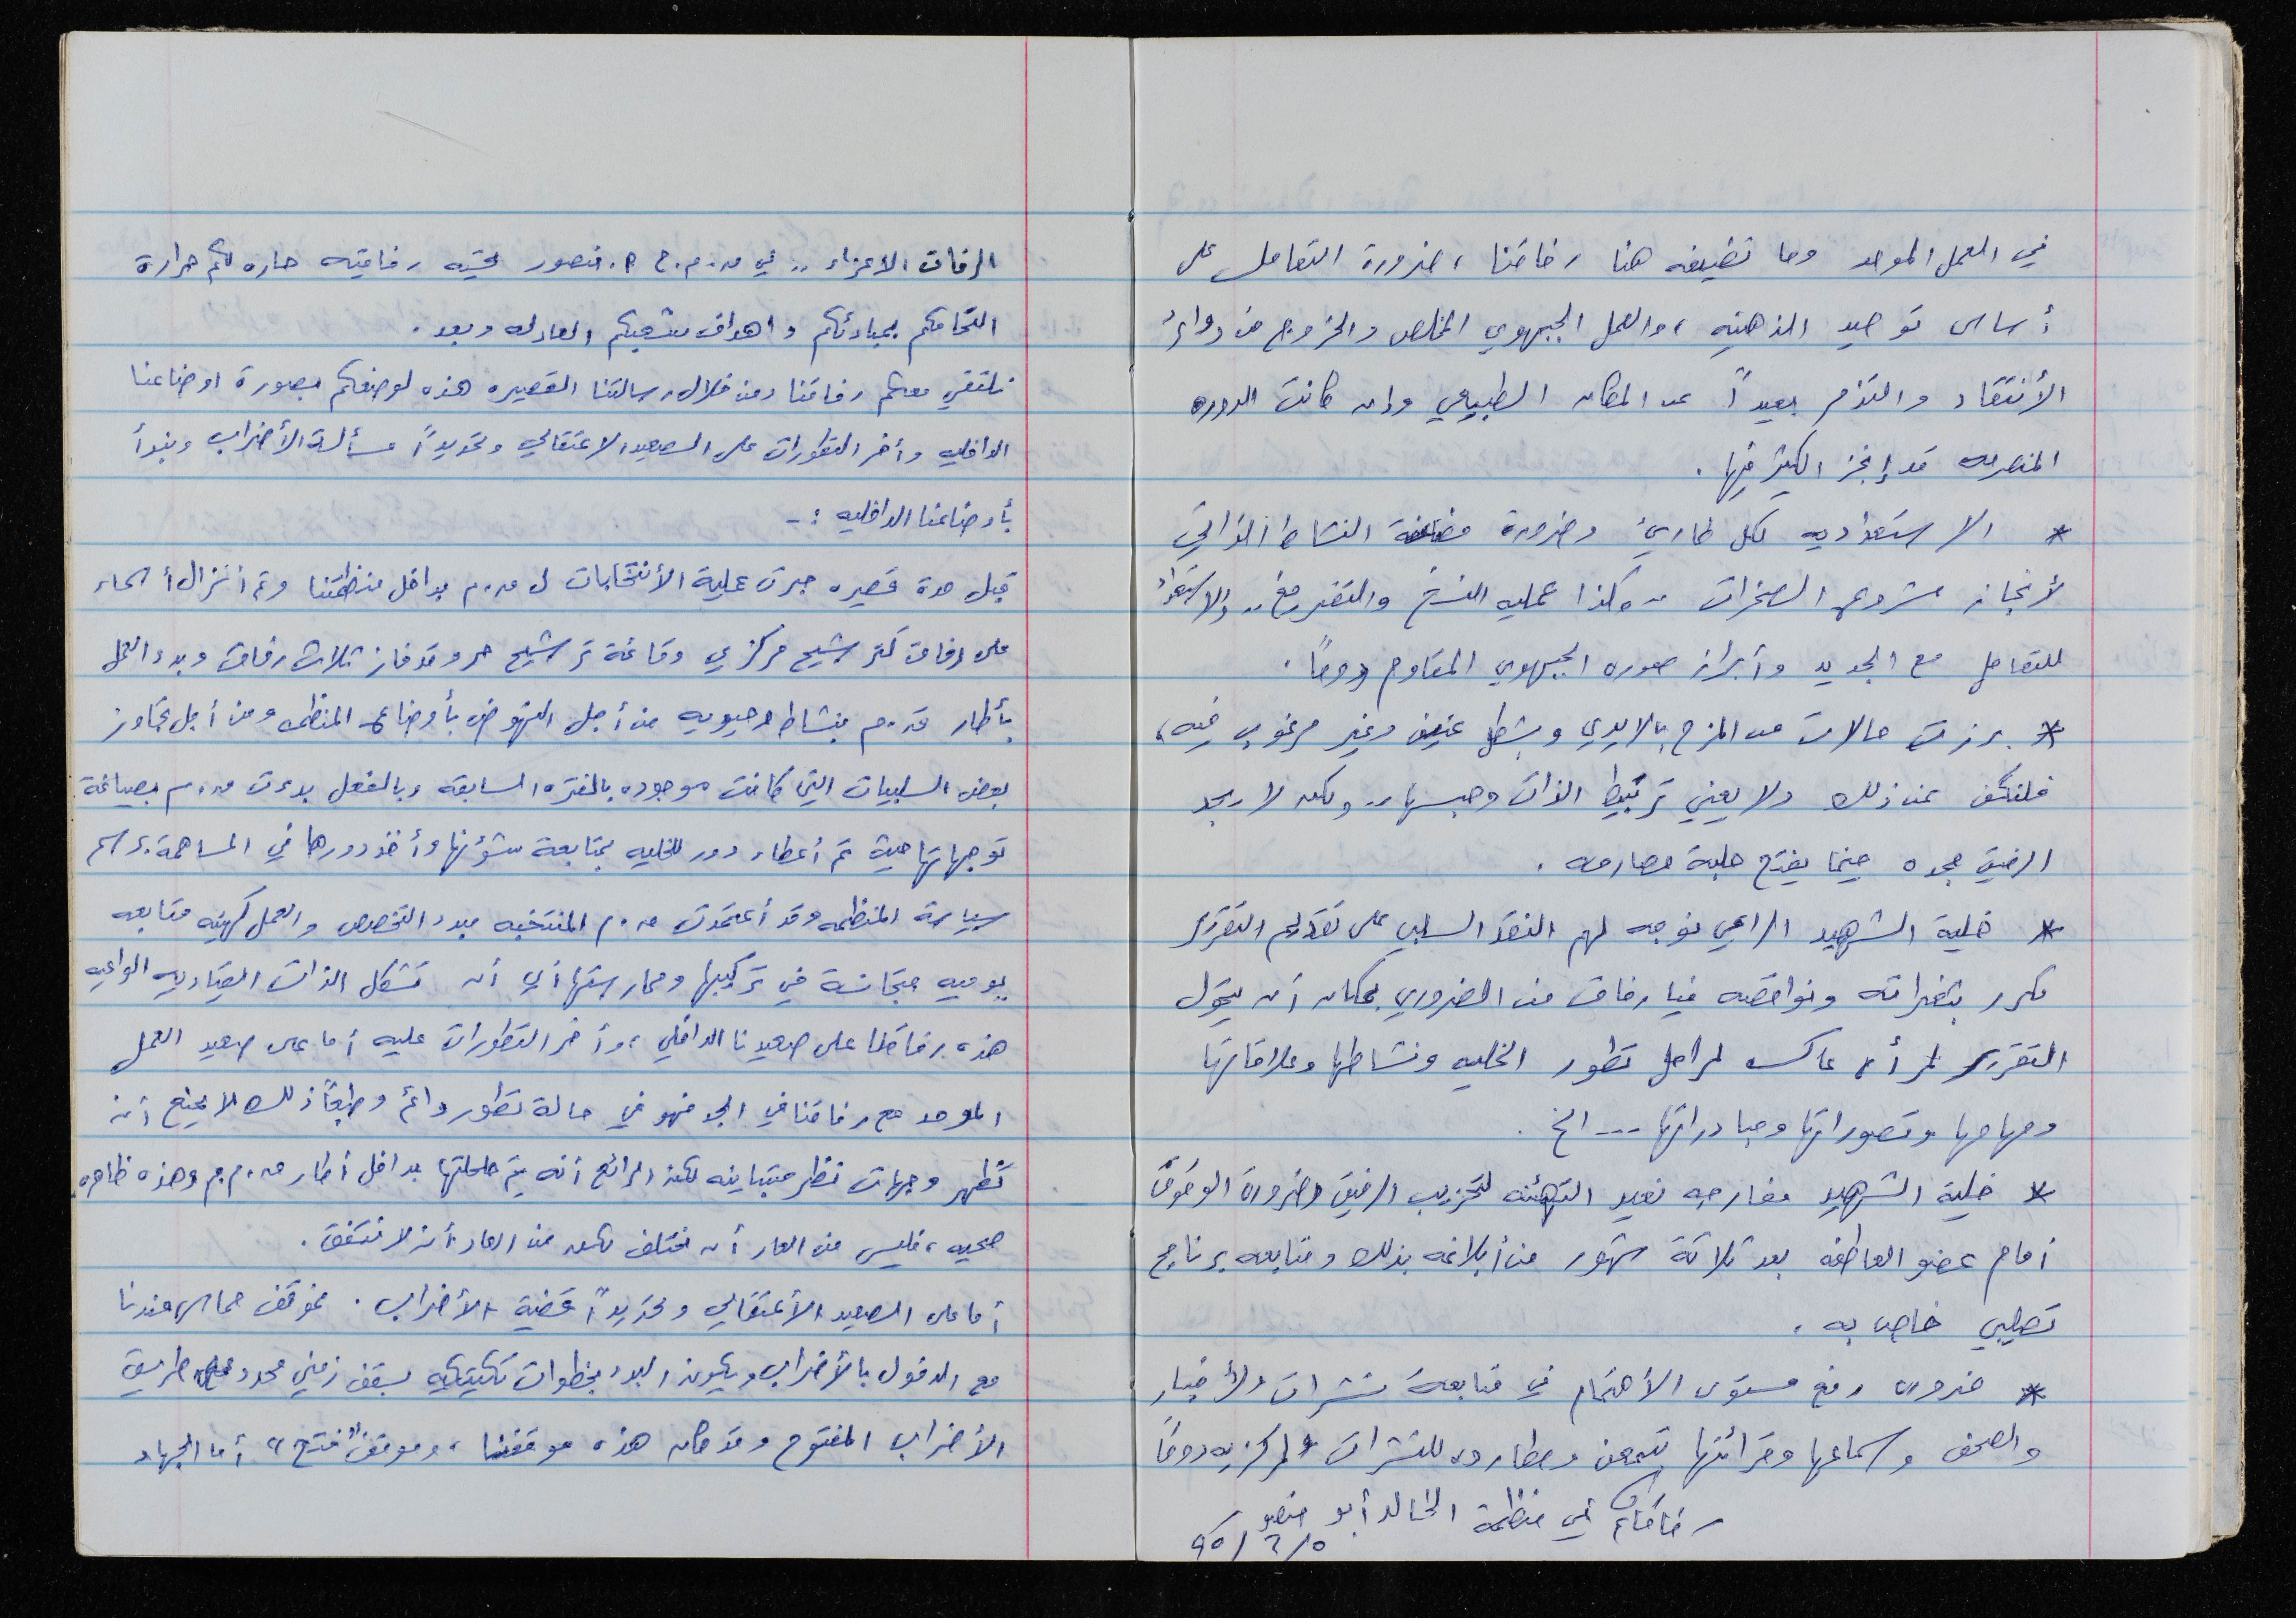 في العمل الموحد وما نضيفه هنا رفاقنا، ضرورة التعامل على
أساس توحيد الذهنيه، والعمل الجبهوي المخلص والخروج من دوائر
الأنتقاد والتذمر بعيداً عن المكان الطبيعي وإن كانت الدوره
المنصرمه قد إنجز الكثير منها.
* الاستعداديه لكل طارئ وضرورة مضاعفة النشاط الذاتي
لأنجاز مشروع الصخرات .. وكذا عمليه النسخ والتفريغ .. والاستعداد
للتعامل مع الجديد وأبراز صوره الجبهوي المقاوم دوماً.
* برزت حالات من المزح بالايدي وبشكل عنيف وغير مرغوب فيه،
فلنكف عن ذلك ولا يعني تربيط الذات وحبسها .. ولكن لا يجد
الرفيق مجده حينما يفتح حلبة مصارعه.
* خلية الشهيد الراعي نوجه لهم النقد السلبي على تقديم التقرير
مكرر بثغراته ونواقصه فيا رفاق من الضروري بمكان أن يتحول
التقرير لمرأه عاكسه لمراحل تطور الخليه ونشاطها وعلاقاتها
ومهامها وتصوراتها ومبادراتها ... الخ.
* خلية الشهيد مفارجه نعيد التهنئه لتحزيب الرفيق وضرورة الوقوف
أمام عضو العاطفه بعد ثلاثة شهور من أبلاغه بذلك ومتابعه برنامج
تصليبي خاص به.
* ضروره رفع مستوى الأهتمام في متابعة نشرات الأخبار
والصحف وسماعها وقرائتها بتمعن ومطارده للنشرات المركزيه دوماً
رفاقكم في منظمة الخالد أبو منصور
٩٥/٦/٥
الرفاق الاعزاء .. في م.م.ج ا. منصور تحيه رفاقيه حاره لكم حرارة
التحامكم بمبادئكم وأهداف شعبكم العادله وبعد.
نلتقي معكم رفاقنا ومن خلال رسالتنا القصيره هذه لوضعكم بصورة اوضاعنا
الداخليه وأخر التطورات على الصعيد الاعتقالي وتحديداً مسألة الأضراب ونبدأ
بأوضاعنا الداخليه :-
قبل مدة قصيره جرت عملية الأنتخابات ل م.م بداخل منظمتنا وتم أنزال أسماء
على رفاق كترشيح مركزي وقائمة ترشيح حر وقد فاز ثلاث رفاق وبدء العمل
بأطار م.م بنشاط وحيويه من أجل النهوض بأوضاع المنظمه ومن أجل تجاوز
بعض السلبيات التي كانت موجوده بالفتره السابقه وبالفعل بدءت م.م بصياغة
توجهاتها حيث تم أعطاء دور للخليه بمتابعة شؤنها وأخذ دورها في المساهمة برسم
سياسة المنظمه وقد أعتمدت م.م المنتخبه مبدء التخصص والعمل كهيئه متابعه
يوميه متجانسة في تركيبها وممارستها أي أن تشكل الذات القياديه الواعيه
هذه رفاقنا على صعيدنا الداخلي، وأخر التطورات عليه أما على صعيد العمل
الموحد مع رفاقنا في الجد فهو في حالة تطور دائم وطبعاً ذلك لا يمنع أن
تظهر وجهات نظر متباينه لكن الرائع أنه يتم حلحلتها بداخل أطار م.م.م وهذه ظاهره
صحيه، فليس من العار أن نختلف لكن من العار أن لا نتفق.
أما على الصعيد الأعتقالي وتحديداً قضية الأضراب. فموقف حماس عندنا
مع الدخول بالأضراب ويكون البدء بخطوات تكتيكيه بسقف زمني محدد طريق
الأضراب المفتوح وقد كان هذا موقفنا، وموقف "فتح" أما الجهاد